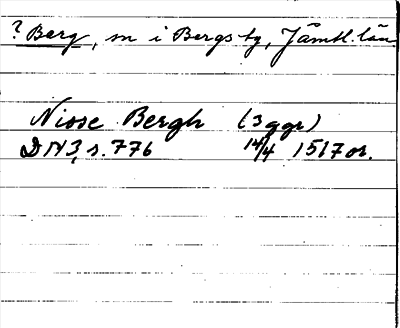 ? Berg, sn i Bergs tg, Jämtl. län
Nisse Bergh (3 ggr)
DN 3, s. 776 14/4 1517 or.